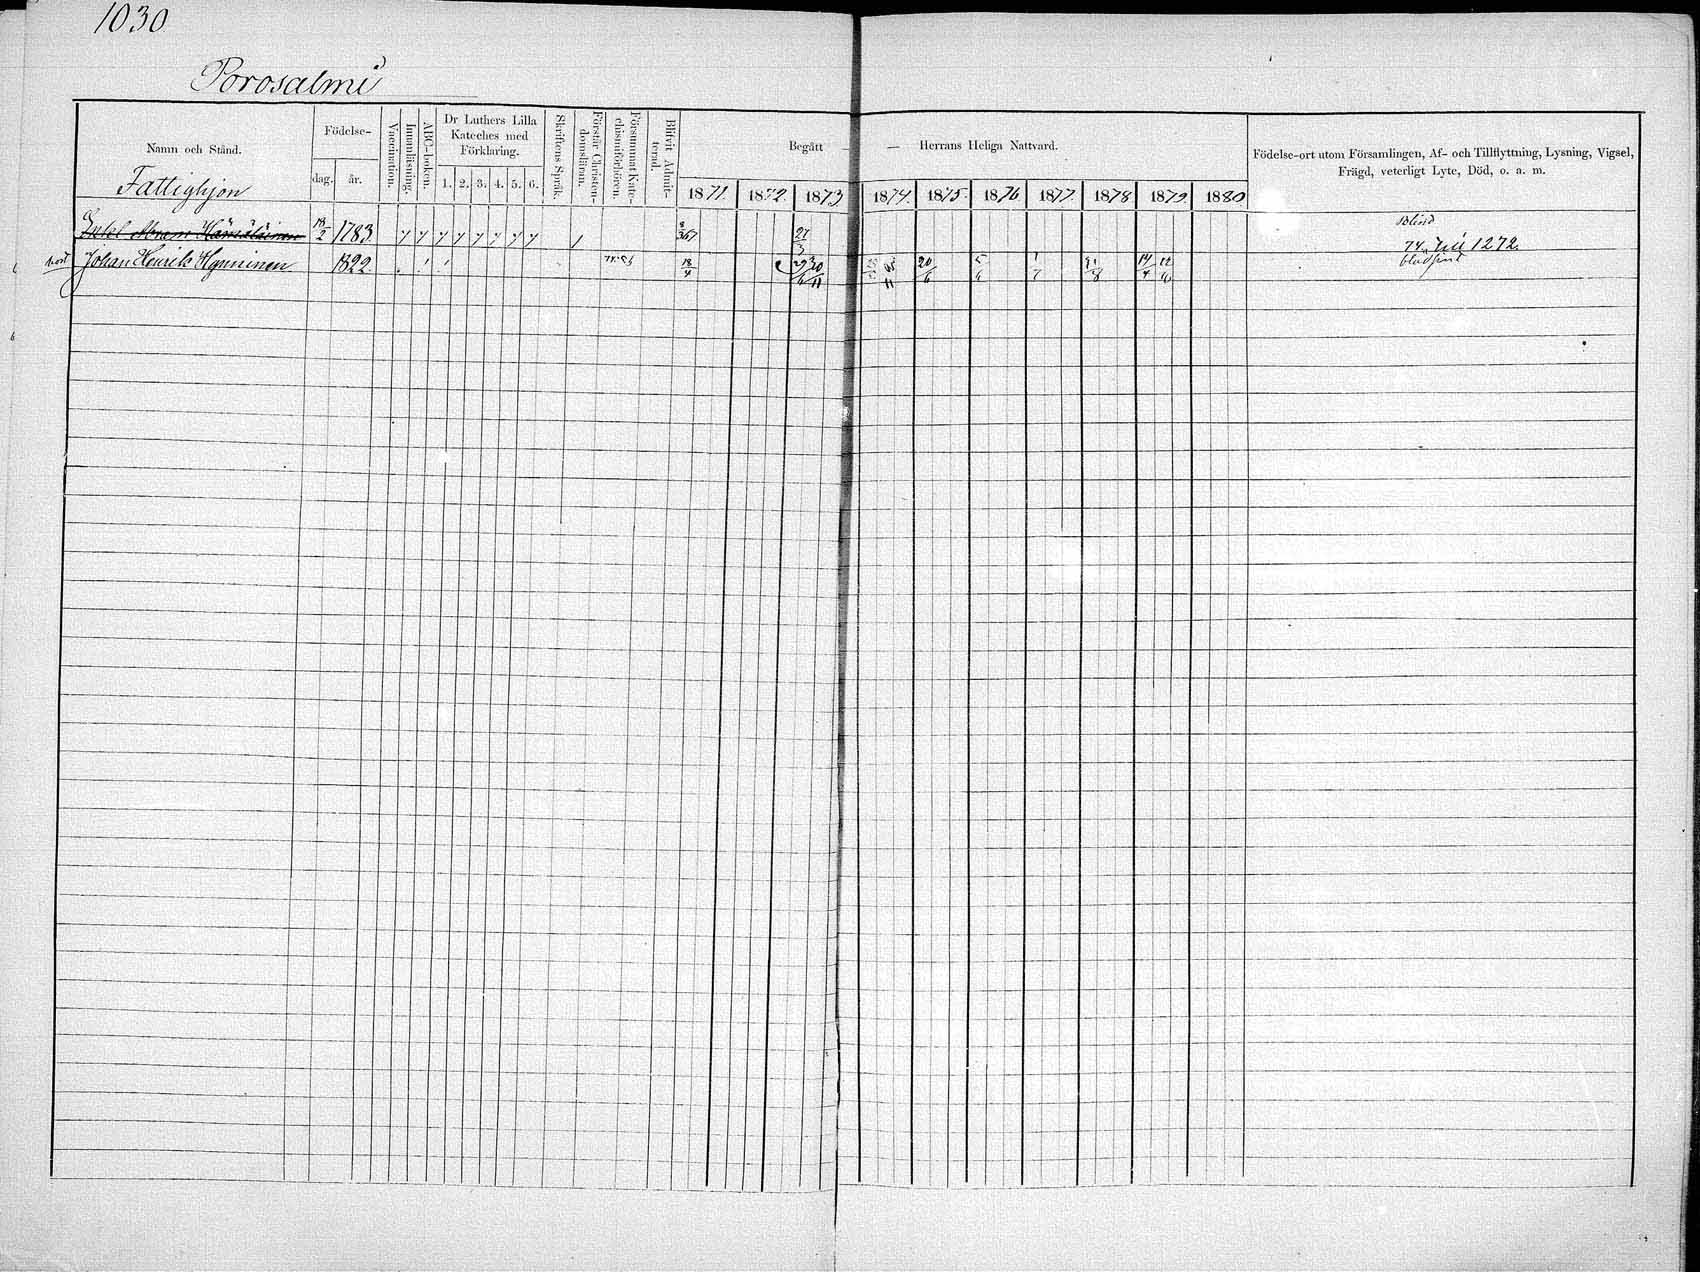 1030
Porosalmi
Namn och Stånd.
Fattighjon
Födelse-
dag.
år.
Vaccination.
Innanläsning.
ABC-boken.
Dr Luthers Lilla
Kateches med
Förklaring.
1. 2. 3. 4. 5. 6.
Skriftens Språk.
Förstår Christen-
domsläran.
Försummat Kate-
chismiförhören.
Blifvit Admit-
terad.
Begått — — Herrans Heliga Nattvard.
1871. 1872. 1873. 1874. 1875. 1876 1877. 1878 1879. 1880
Födelse-ort utom Församlingen, Af- och Tillflyttning, Lysning, Vigsel,
Frägd, veterligt Lyte, Död, o. a. m.
Abram Hämäläinen 18/2 1783. 27/3 Blind
Johan Henrik Hynninen 1822. 18/4 20/11 20/6 5/6 1/7 14/4